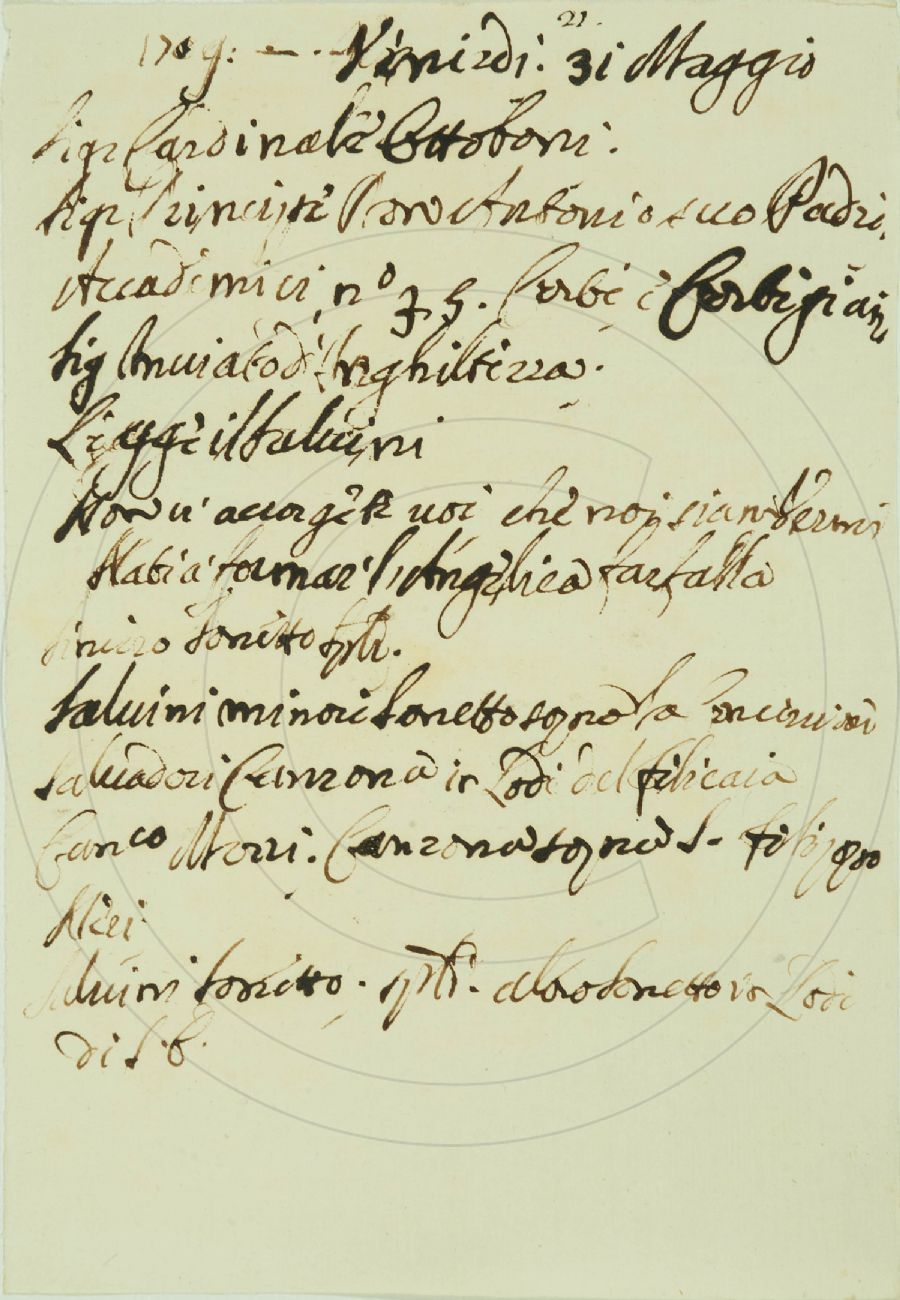 1709: — . . Venerdi. 31 Maggio
21.
Sigr Cardinale Ottoboni.
Sigr Principe Don Antonio suo Padre,
Accademici n.o 35. Corbi e
Sig Inviato d'Inghilterra.
Legge il Salvini
Non v'accorgete voi che noi sian vermi
Nati a formar l'Angelica farfalla
Sonetto
Salvini minore Sonetto sopra la
Salvadori Canzona in Lode del Filicaia
Canco Morri. Canzona sopra S. Filippo
Neri
Salvini Sonetto. altro Sonetto in Lode
di S. B.